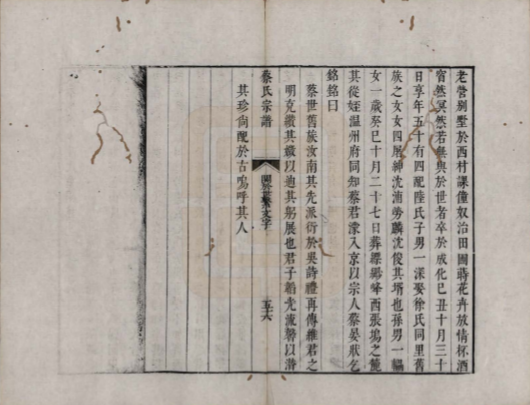 老營別墅於西村課僮奴治田園蒔花卉放情杯酒
窅然冥然若無與於世者卒於成化己丑十月三十
日享年五十有四配陸氏子男一濚娶徐氏同里舊
族之女女四屠紳沈浦勞麟沈俊其壻也孫男一
女一歲癸巳十月二十七日葬縹緲峰西張塢之麓
其從姪溫州府同知蔡君濛入京以宗人蔡晏狀乞
銘銘曰
蔡世舊族汝南其先派衍於吳詩禮再傳維君之
明克纘其緒以迪其躬展也君子韜光流馨以潛
其珍尚配於古嗚呼其人
蔡氏宗譜
五十六